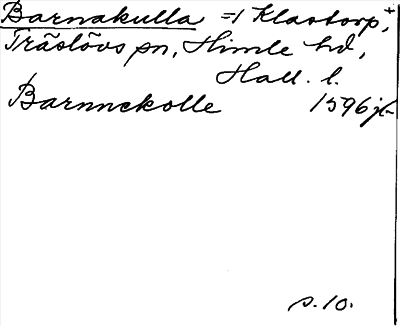 Barnakulla =/ Klastorp,+
Träslövs sn, Himle hd,
Hall. l.
Barnnekolle 1596 jb
s. 10.